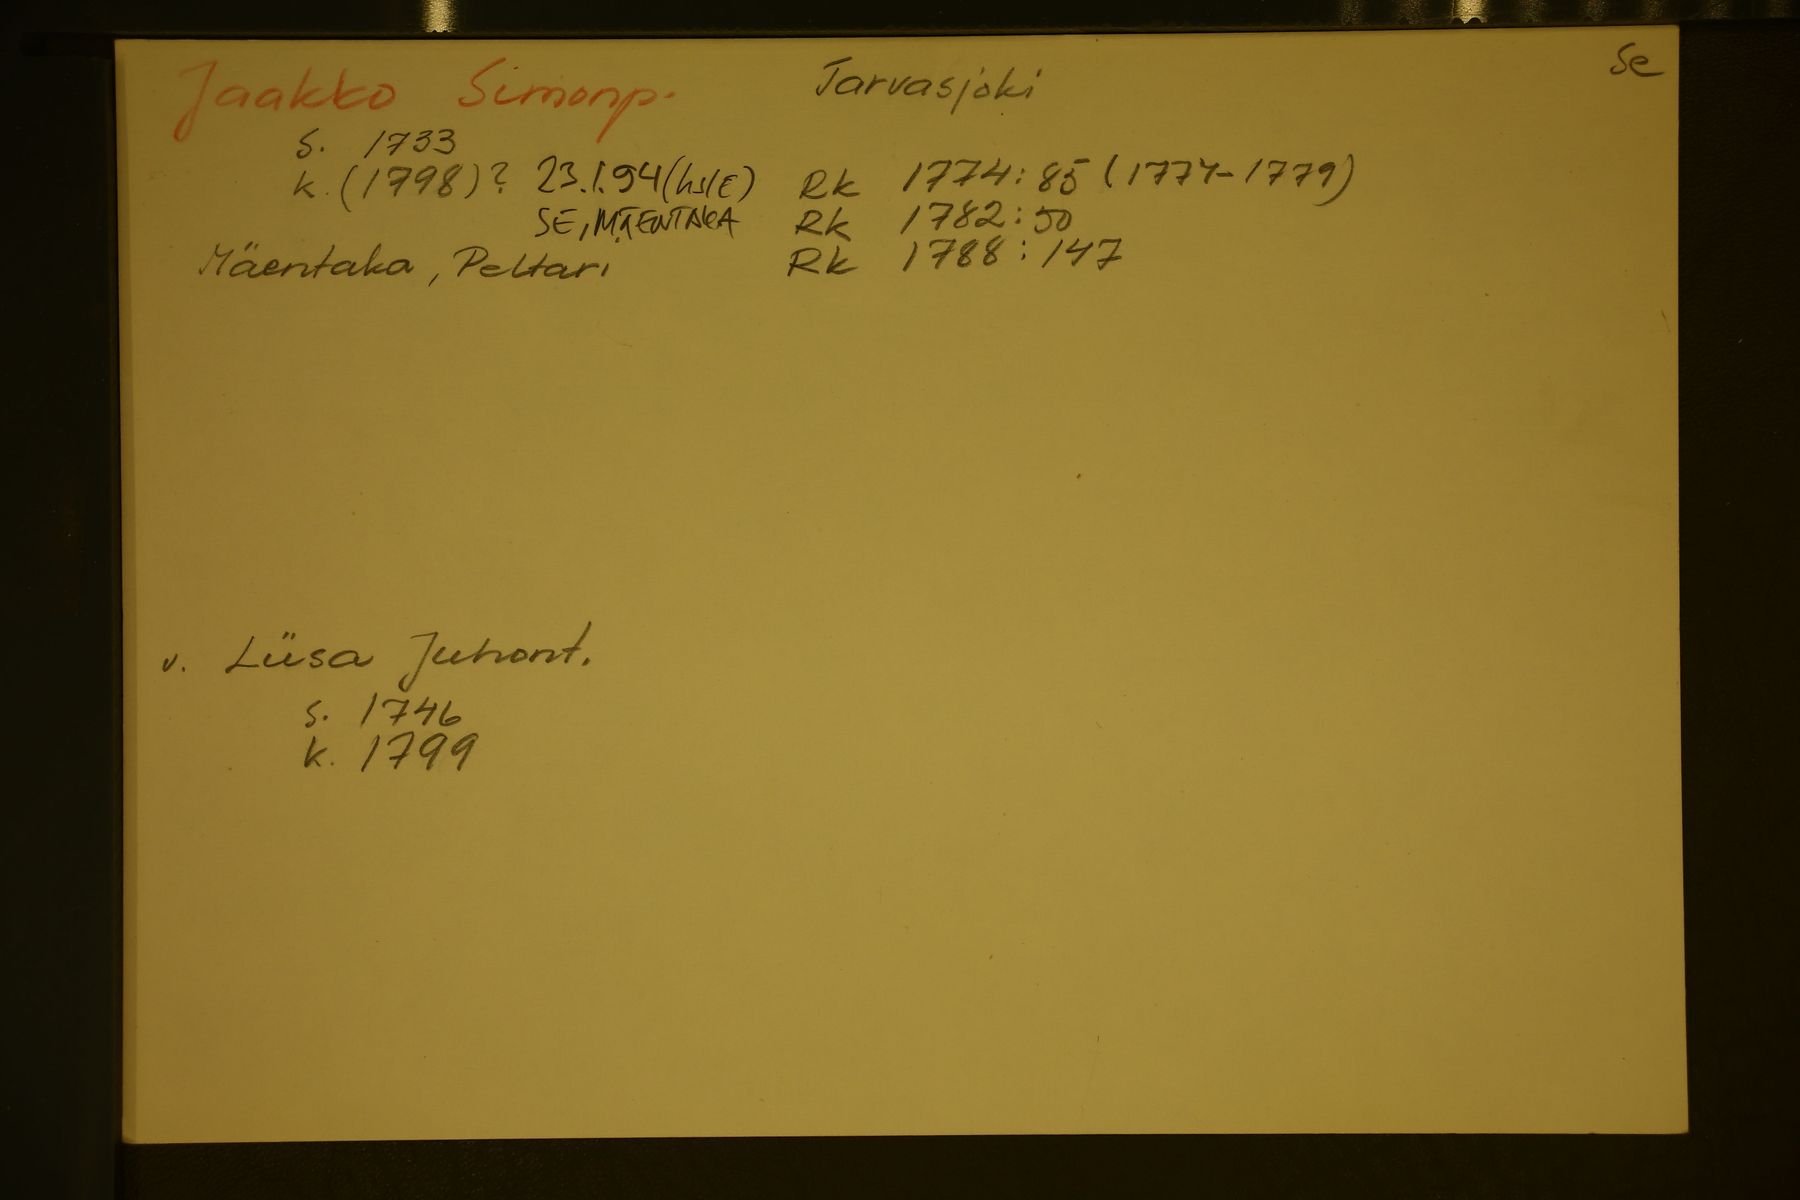 Jaakko Simonp. Tarvasjoki Se
s. 1733
k. (1798)? 23.1.94 (hslE) Rk 1774:85 (1774-1779)
SE, MÄENTAKA Rk 1782:50
Mäentaka, Peltari Rk 1788:147
v. Liisa Juhont.
s. 1746
k. 1799